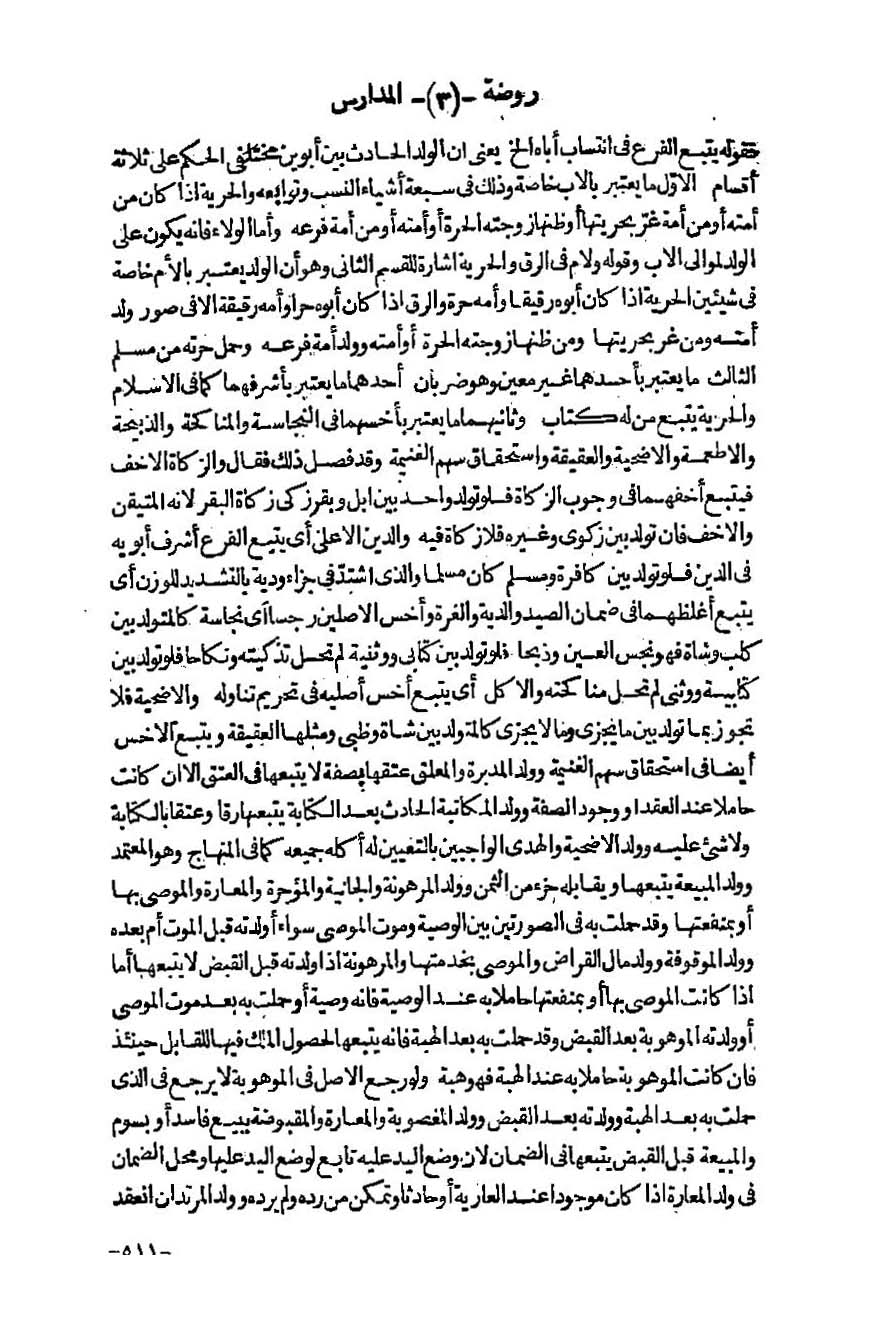 روضة -(٣)- المدارس
فقوله يتبع الفرع فى انتساب أباه الخ يعنى ان الولد الحادث بين أبوين مختلفى الحكم على ثلاثة
أقسام الاوّل ما يعتبر بالاب خاصة وذلك فى سبعة أشياء النسب وتوابعه والحرية اذا كان من
أمته أو من أمة غرّ بحريتها أو ظنها زوجته الحرة أو أمته أو من أمة فرعه وأما الولاء فانه يكون على
الولد لموالى الاب وقوله ولام فى الرق والحرية اشارة للقسم الثانى وهو أن الولد يعتبر بالأم خاصة
فى شيئين الحرية اذا كان أبوه رقيقا وأمه حرة والرق اذا كان أبوه حرا وأمه رقيقة الا فى صور ولد
أمته ومن غر بحريتها ومن ظنها زوجته الحرة أو أمته وولد أمة فرعه وحمل حرته من مسلم
الثالث ما يعتبر بأحدهما غير معين وهو ضربان أحدهما ما يعتبر بأشرفهما كما فى الاسلام
والحرية يتبع من له كتاب وثانيهما ما يعتبر بأخسهما فى النجاسة والمناكحة والذبيحة
والاطعمة والاضحية والعقيقة واستحقاق سهم الغنيمة وقد فصل ذلك فقال والزكاة الاخف
فيتبع أخفهما فى وجوب الزكاة فلو تولد واحد بين ابل وبقر زكى زكاة البقر لانه المتيقن
والاخف فان تولد بين زكوى وغيره فلا زكاة فيه والدين الاعلى أى يتبع الفرع أشرف أبويه
فى الدين فلو تولد بين كافرة ومسلم كان مسلما والذى اشتدّ فى جزاء ودية بالتشديد للوزن أى
يتبع أغلظهما فى ضمان الصيد والدية والغرة وأخس الاصلين رجسا أى نجاسة كالمتولد بين
كلب وشاة فهو نجس العين وذبحا فلو تولد بين كتابى ووثنية لم تحل تذكيته ونكاحا فلو تولد بين
كتابية ووثنى لم تحل مناكحته والاكل أى يتبع أخس أصليه فى تحريم تناوله والاضحية فلا
تجوز بما تولد بين ما يجزى وما لا يجزى كالمتولد بين شاة وظبى ومثلها العقيقة ويتبع الاخس
أيضا فى استحقاق سهم الغنيمة وولد المدبرة والمعلق عتقها بصفة لا يتبعها فى العتق الا ان كانت
حاملا عند العقد او وجود الصفة وولد المكاتبة الحادث بعد الكتابة يتبعها رقا وعتقا بالكتابة
ولا شئ عليه وولد الاضحية والهدى الواجبين بالتعيين له أكله جميعه كما فى المنهاج وهو المعتمد
وولد المبيعة يتبعها ويقابله جزء من الثمن وولد المرهونة والجانية والمؤجرة والمعارة والموصى بها
أو بمنفعتها وقد حملت به فى الصورتين بين الوصية وموت الموصى سواء أولدته قبل الموت أم بعده
وولد الموقوفة وولد مال القراض والموصى بخدمتها والمرهونة اذا ولدته قبل القبض لا يتبعها أما
اذا كانت الموصى بها أو بمنفعتها حاملا به عند الوصية فانه وصية أو حملت به بعد موت الموصى
أو ولدته الموهوبة بعد القبض وقد حملت به بعد الهبة فانه يتبعها لحصول الملك فيها للقابل حينئذ
فان كانت الموهوبة حاملا به عند الهبة فهو هبة ولو رجع الاصل فى الموهوبة لا يرجع فى الذى
حملت به بعد الهبة وولدته بعد القبض وولد المغصوبة والمعارة والمقبوضة ببيع فاسد أو بسوم
والمبيعة قبل القبض يتبعها فى الضمان لان وضع اليد عليه تابع لوضع اليد عليها ومحل الضمان
فى ولد المعارة اذا كان موجودا عند العارية أو حادثا وتمكن من رده ولم يرده وولد المرتد ان انعقد
-٥١١-